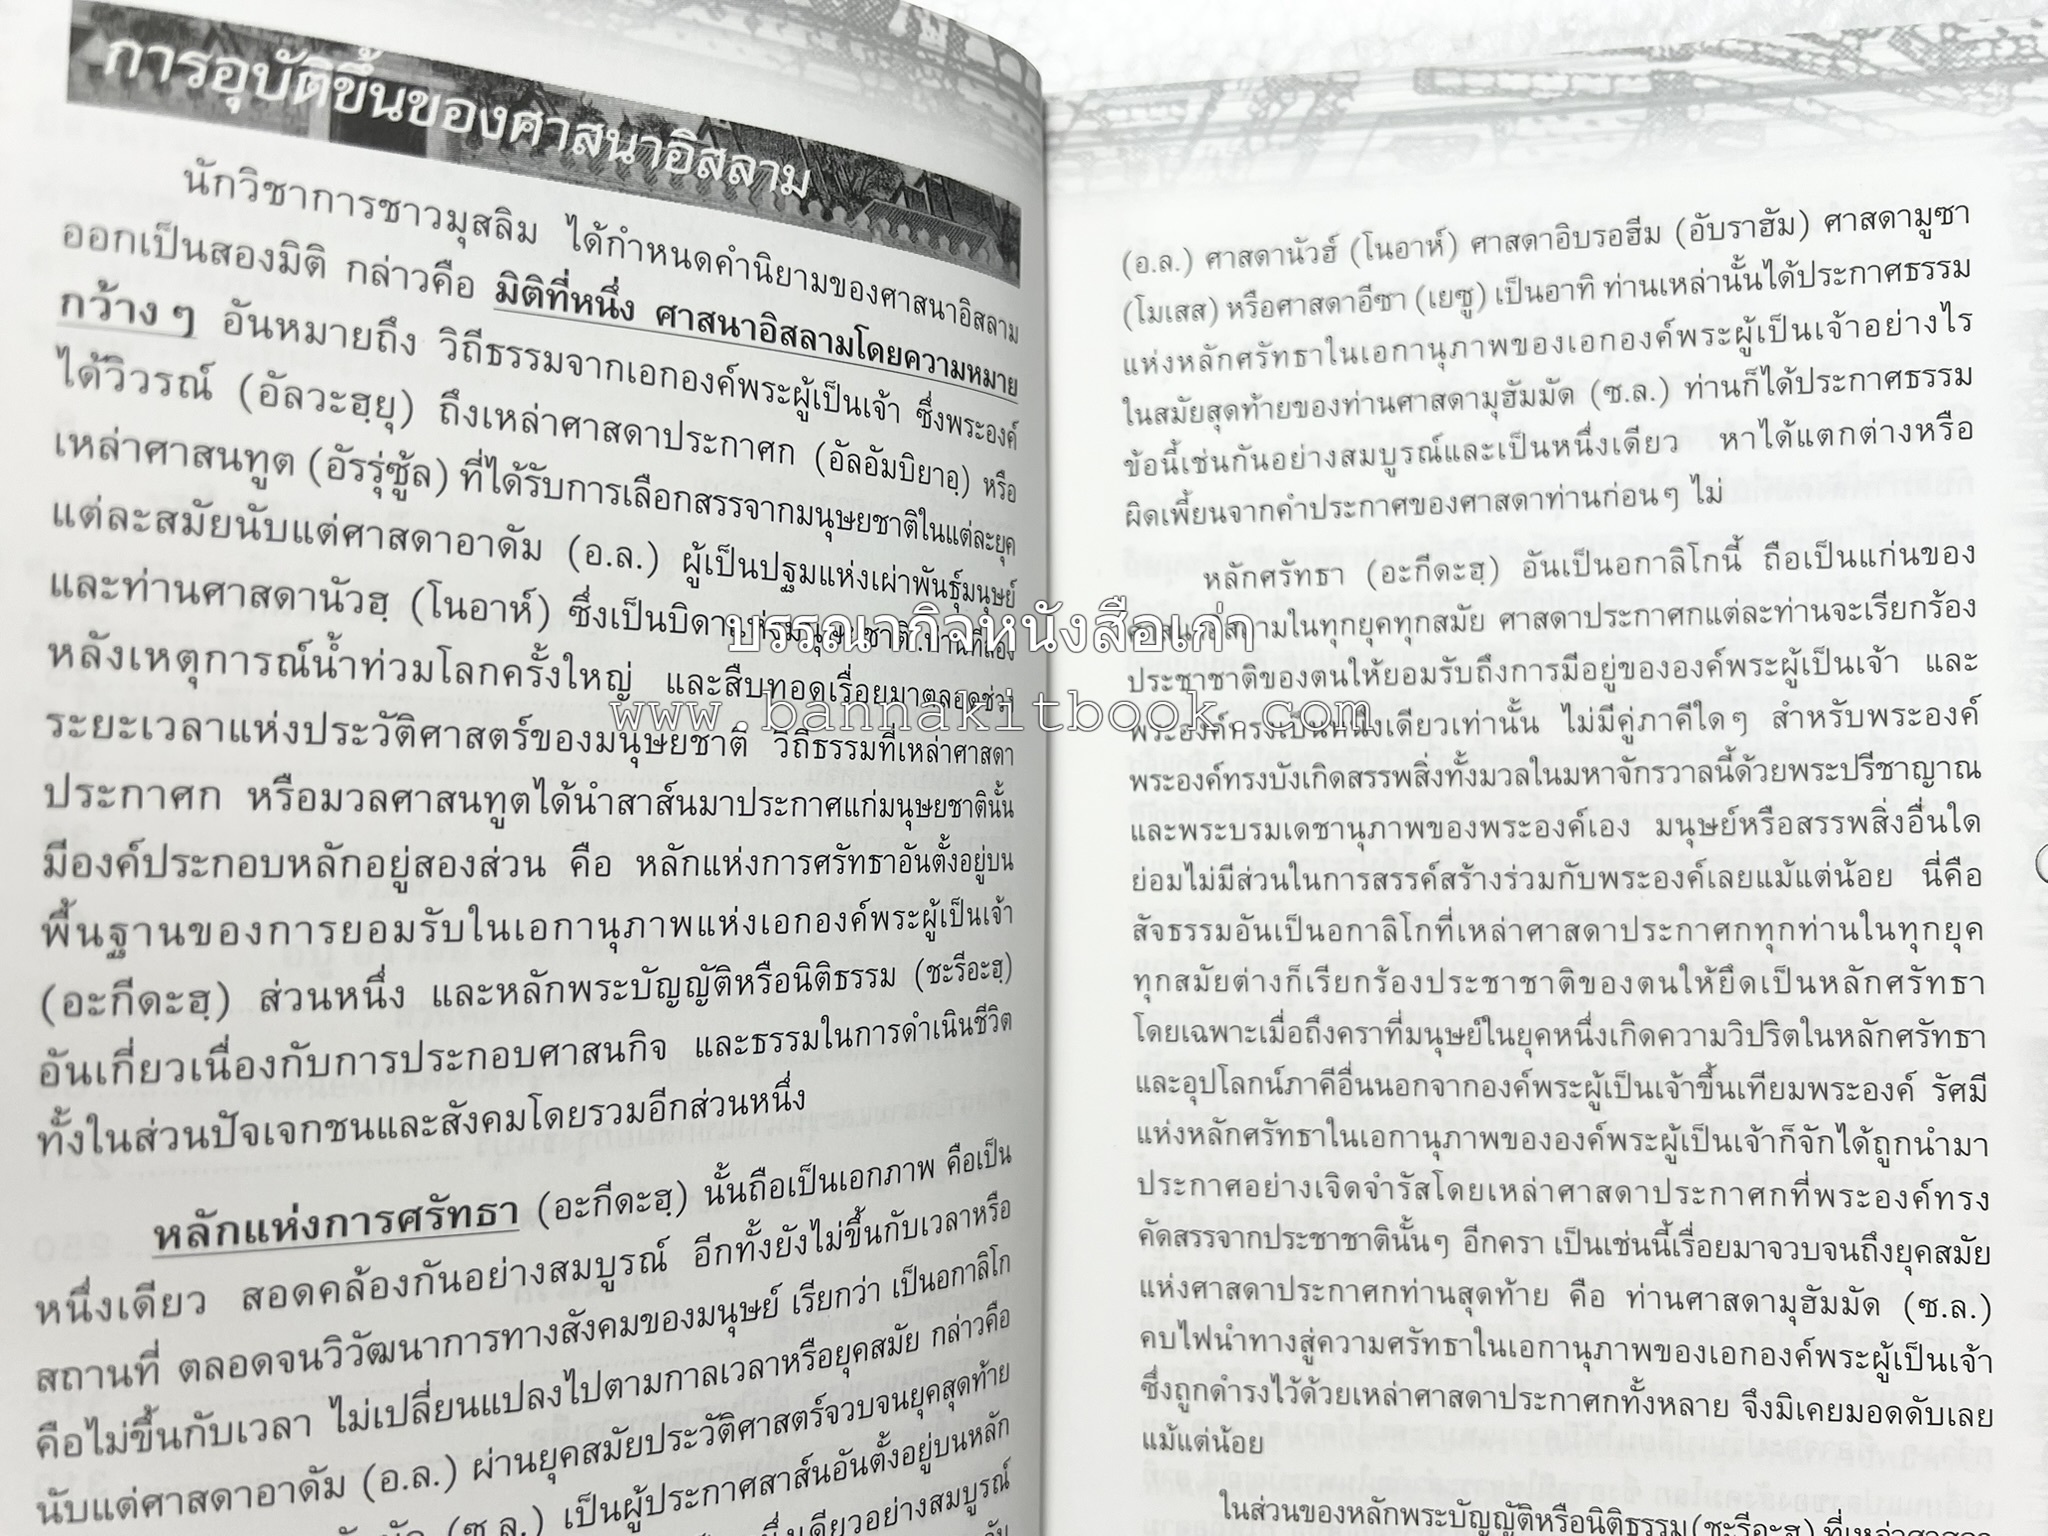 การอุบัติขึ้นของศาสนาอิสลาม
นักวิชาการชาวมุสลิม ได้กำหนดคำนิยามของศาสนาอิสลาม
ออกเป็นสองมิติ กล่าวคือ มิติที่หนึ่ง ศาสนาอิสลามโดยความหมาย
กว้าง ๆ อันหมายถึง วิถีธรรมจากเอกองค์พระผู้เป็นเจ้า ซึ่งพระองค์
ได้วิวรณ์ (อัลวะฮฺยุ) ถึงเหล่าศาสดาประกาศก (อัลอัมบิยาอฺ) หรือ
เหล่าศาสนทูต (อัรรุ่ซู้ล) ที่ได้รับการเลือกสรรจากมนุษยชาติในแต่ละยุค
แต่ละสมัยนับแต่ศาสดาอาดัม (อ.ล.) ผู้เป็นปฐมแห่งเผ่าพันธุ์มนุษย์
และท่านศาสดานัวฮฺ (โนอาห์) ซึ่งเป็นบิดา
หลังเหตุการณ์น้ำท่วมโลกครั้งใหญ่ และสืบทอดเรื่อยมาตลอดช่วง
ระยะเวลาแห่งประวัติศาสตร์ของมนุษยชาติ วิถีธรรมที่เหล่าศาสดา
ประกาศก หรือมวลศาสนทูตได้นำสาส์นมาประกาศแก่มนุษยชาตินั้น
มีองค์ประกอบหลักอยู่สองส่วน คือ หลักแห่งการศรัทธาอันตั้งอยู่บน
พื้นฐานของการยอมรับในเอกานุภาพแห่งเอกองค์พระผู้เป็นเจ้า
(อะกีดะฮฺ) ส่วนหนึ่ง และหลักพระบัญญัติหรือนิติธรรม (ชะรีอะฮฺ)
อันเกี่ยวเนื่องกับการประกอบศาสนกิจ และธรรมในการดำเนินชีวิต
ทั้งในส่วนปัจเจกชนและสังคมโดยรวมอีกส่วนหนึ่ง
หลักแห่งการศรัทธา (อะกีดะฮฺ) นั้นถือเป็นเอกภาพ คือเป็น
หนึ่งเดียว สอดคล้องกันอย่างสมบูรณ์ อีกทั้งยังไม่ขึ้นกับเวลาหรือ
สถานที่ ตลอดจนวิวัฒนาการทางสังคมของมนุษย์ เรียกว่า เป็นอกาลิโก
คือไม่ขึ้นกับเวลา ไม่เปลี่ยนแปลงไปตามกาลเวลาหรือยุคสมัย กล่าวคือ
นับแต่ศาสดาอาดัม (อ.ล.) ผ่านยุคสมัยประวัติศาสตร์จวบจนยุคสุดท้าย
(ซ.ล.) เป็นผู้ประกาศสาส์นอันตั้งอยู่บนหลัก
หนึ่งเดียวอย่างสมบูรณ์
(อ.ล.) ศาสดานัวฮ์ (โนอาห์) ศาสดาอิบรอฮีม (อับราฮัม) ศาสดามูซา
(โมเสส) หรือศาสดาอีซา (เยซู) เป็นอาทิ ท่านเหล่านั้นได้ประกาศธรรม
แห่งหลักศรัทธาในเอกานุภาพของเอกองค์พระผู้เป็นเจ้าอย่างไร
ในสมัยสุดท้ายของท่านศาสดามุฮัมมัด (ซ.ล.) ท่านก็ได้ประกาศธรรม
ข้อนี้เช่นกันอย่างสมบูรณ์และเป็นหนึ่งเดียว หาได้แตกต่างหรือ
ผิดเพี้ยนจากคำประกาศของศาสดาท่านก่อนๆ ไม่
หลักศรัทธา (อะกีดะฮฺ) อันเป็นอกาลิโกนี้ ถือเป็นแก่นของ
ศาสนาอิสลามในทุกยุคทุกสมัย ศาสดาประกาศกแต่ละท่านจะเรียกร้อง
ประชาชาติของตนให้ยอมรับถึงการมีอยู่ขององค์พระผู้เป็นเจ้า และ
พระองค์ทรงเป็นหนึ่งเดียวเท่านั้น ไม่มีคู่ภาคีใดๆ สำหรับพระองค์
พระองค์ทรงบังเกิดสรรพสิ่งทั้งมวลในมหาจักรวาลนี้ด้วยพระปรีชาญาณ
และพระบรมเดชานุภาพของพระองค์เอง มนุษย์หรือสรรพสิ่งอื่นใด
ย่อมไม่มีส่วนในการสรรค์สร้างร่วมกับพระองค์เลยแม้แต่น้อย นี่คือ
สัจธรรมอันเป็นอกาลิโกที่เหล่าศาสดาประกาศกทุกท่านในทุกยุค
ทุกสมัยต่างก็เรียกร้องประชาชาติของตนให้ยึดเป็นหลักศรัทธา
โดยเฉพาะเมื่อถึงคราที่มนุษย์ในยุคหนึ่งเกิดความวิปริตในหลักศรัทธา
และอุปโลกน์ภาคีอื่นนอกจากองค์พระผู้เป็นเจ้าขึ้นเทียมพระองค์ รัศมี
แห่งหลักศรัทธาในเอกานุภาพขององค์พระผู้เป็นเจ้าก็จักได้ถูกนำมา
ประกาศอย่างเจิดจำรัสโดยเหล่าศาสดาประกาศกที่พระองค์ทรง
คัดสรรจากประชาชาตินั้นๆ อีกครา เป็นเช่นนี้เรื่อยมาจวบจนถึงยุคสมัย
แห่งศาสดาประกาศกท่านสุดท้าย คือ ท่านศาสดามุฮัมมัด (ซ.ล.)
คบไฟนำทางสู่ความศรัทธาในเอกานุภาพของเอกองค์พระผู้เป็นเจ้า
ซึ่งถูกดำรงไว้ด้วยเหล่าศาสดาประกาศกทั้งหลาย จึงมิเคยมอดดับเลย
แม้แต่น้อย
ในส่วนของหลักพระบัญญัติหรือนิติธรรม (ชะรีอะฮฺ) ที่เหล่าศาสดา
บรรณากิจหนังสือเก่า
www.bannakitbook.com